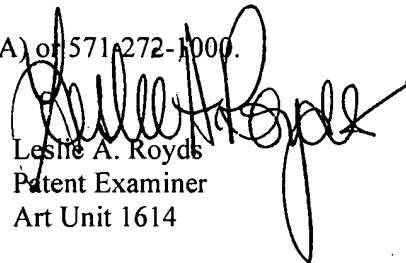 A) or 571-272-1000.
Leslie A. Royds
Leslie A. Royds
Patent Examiner
Art Unit 1614